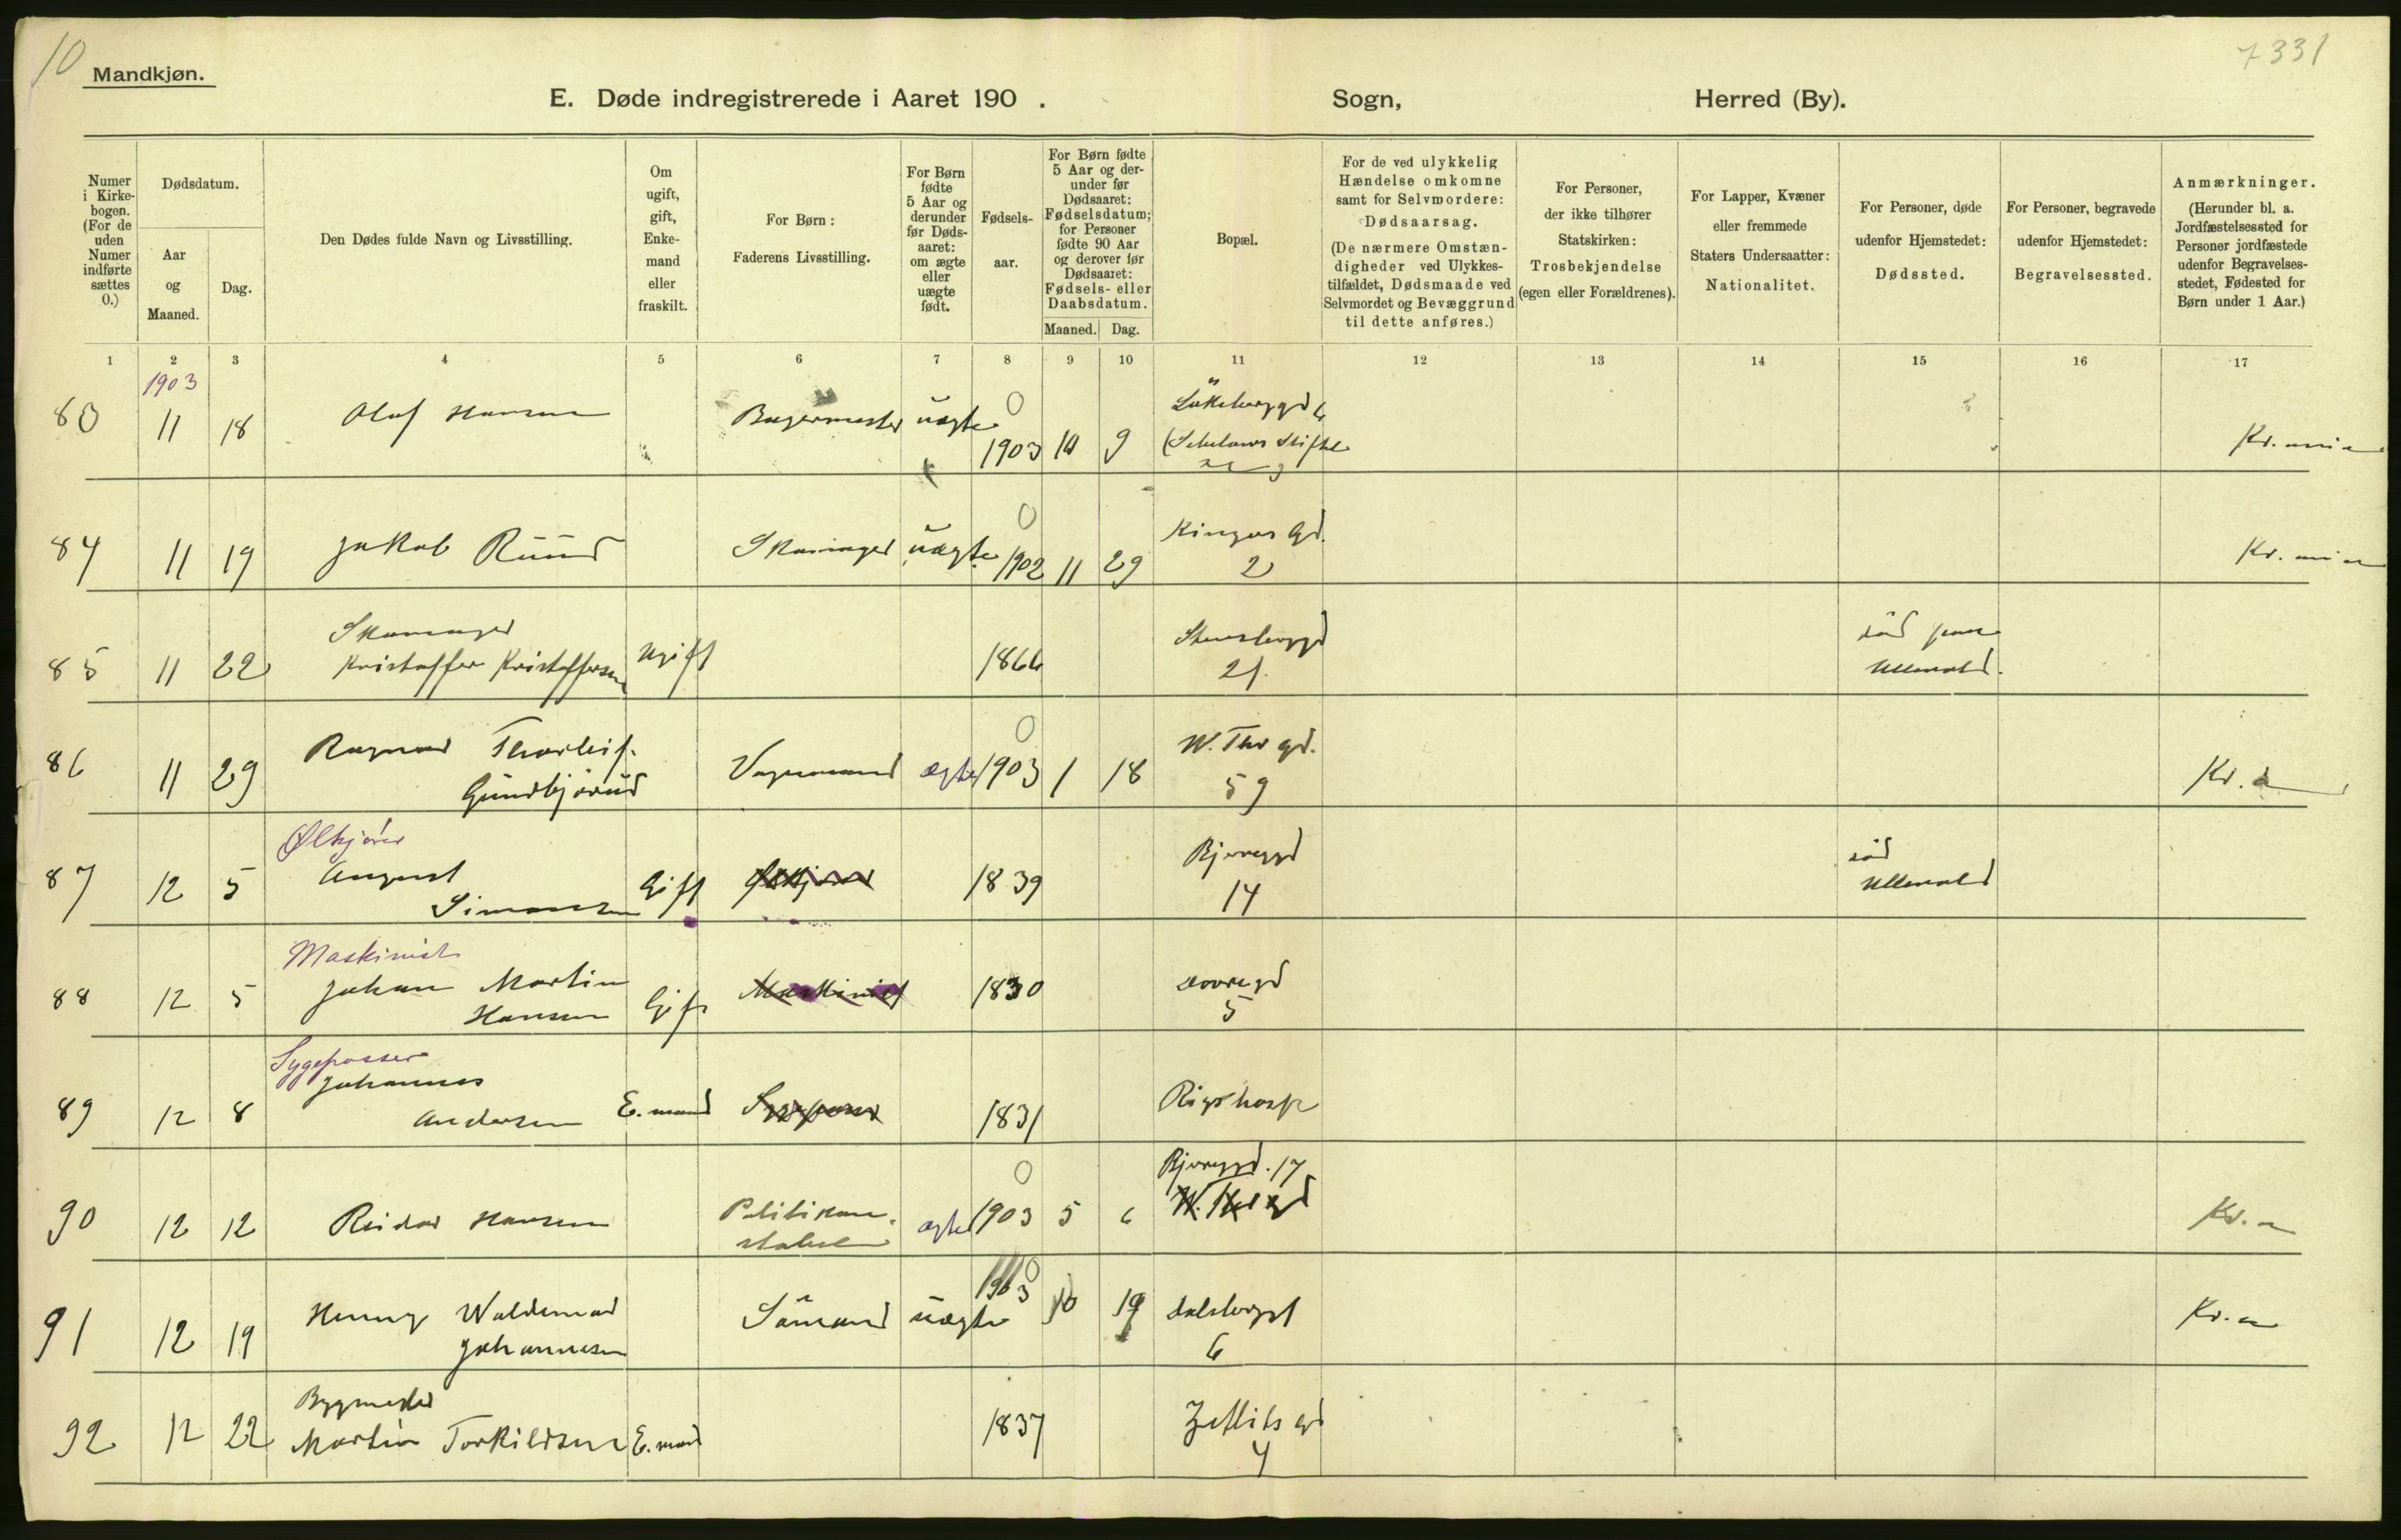 10
7331
Mandkjøn.
E. Døde indregistrerede i Aaret 190 . Sogn, Herred (By).
Numer i Kirke-bogen. (For de uden Numer indførte sættes 0.)
Dødsdatum.
Aar og Maaned.
Dag.
Den Dødes fulde Navn og Livsstilling.
Om ugift, gift, Enke-mand eller fraskilt.
For Børn: Faderens Livsstilling.
For Børn fødte 5 Aar og derunder før Døds-aaret: om ægte eller uægte født.
Fødsels-aar.
For Børn fødte 5 Aar og der-under før Dødsaaret: Fødselsdatum; for Personer fødte 90 Aar og derover før Dødsaaret: Fødsels- eller Daabsdatum.
Maaned. Dag.
Bopæl.
For de ved ulykkelig Hændelse omkomne samt for Selvmordere: Dødsaarsag. (De nærmere Omstæn-digheder ved Ulykkes-tilfældet, Dødsmaade ved Selvmordet og Bevæggrund til dette anføres.)
For Personer, der ikke tilhører Statskirken: Trosbekjendelse (egen eller Forældrenes).
For Lapper, Kvæner eller fremmede Staters Undersaatter: Nationalitet.
For Personer, døde udenfor Hjemstedet: Dødssted.
For Personer, begravede udenfor Hjemstedet: Begravelsessted.
Anmærkninger. (Herunder bl. a. Jordfæstelsessted for Personer jordfæstede udenfor Begravelses-stedet, Fødested for Børn under 1 Aar.)
1 2 3 4 5 6 7 8 9 10 11 12 13 14 15 16 17
1903
83 11 18 Olaf Hansen Bagermester uægte 0 1903 10 9 Kr.ania
84 11 19 Jakob Ruud Skomager uægte 0 1902 11 29 Kingos Gd. 2 Kr.ania
85 11 22 Skomager Kristoffer Kristoffersen Ugift 1866 Stensberggd 21. død paa Ullevold.
86 11 29 Ragnar Thorleif Gundbjörud Vognmand ægte 0 1903 1 18 W. Thr gd. 59 Kr.a
87 12 5 Ølkjører August Simonsen Gift Ølkjører 1839 Bjerregd 14 død Ullevold
88 12 5 Maskinist Johan Martin Hansen Gift Maskinist 1830 Dovregd 5
89 12 8 Sygepasser Johannes Andersen E.mand Sygepasser 1831 Rigshosp
90 12 12 Reidar Hansen Politikonstabel ægte 0 1903 5 6 Bjerregd. 17 W. Thr gd Kr.a
91 12 19 Henry Waldemar Johannesen Sömand uægte 0 1903 10 19 Dalsbergst 6 Kr.a
92 12 22 Bygmester Martin Torkildsen E.mand 1837 Zetlits gd 4